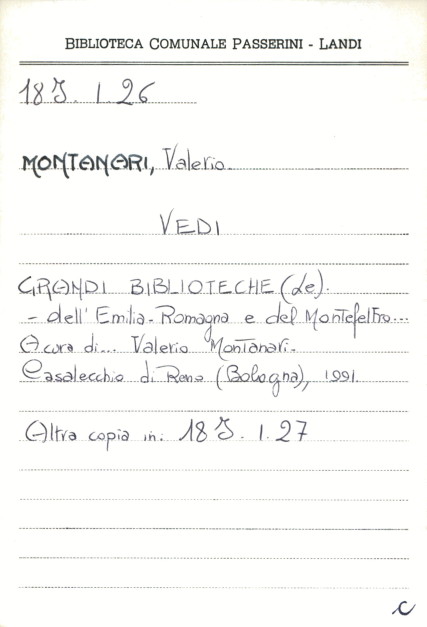 BIBLIOTECA COMUNALE PASSERINI - LANDI
18J. 1.26
MONTANARI, Valerio.
VEDI
GRANDI BIBLIOTECHE (Le).
- dell'Emilia-Romagna e del Montefeltro...
A cura di... Valerio Montanari.
Casalecchio di Reno (Bologna), 1991.
Altra copia in: 18J. 1.27
C